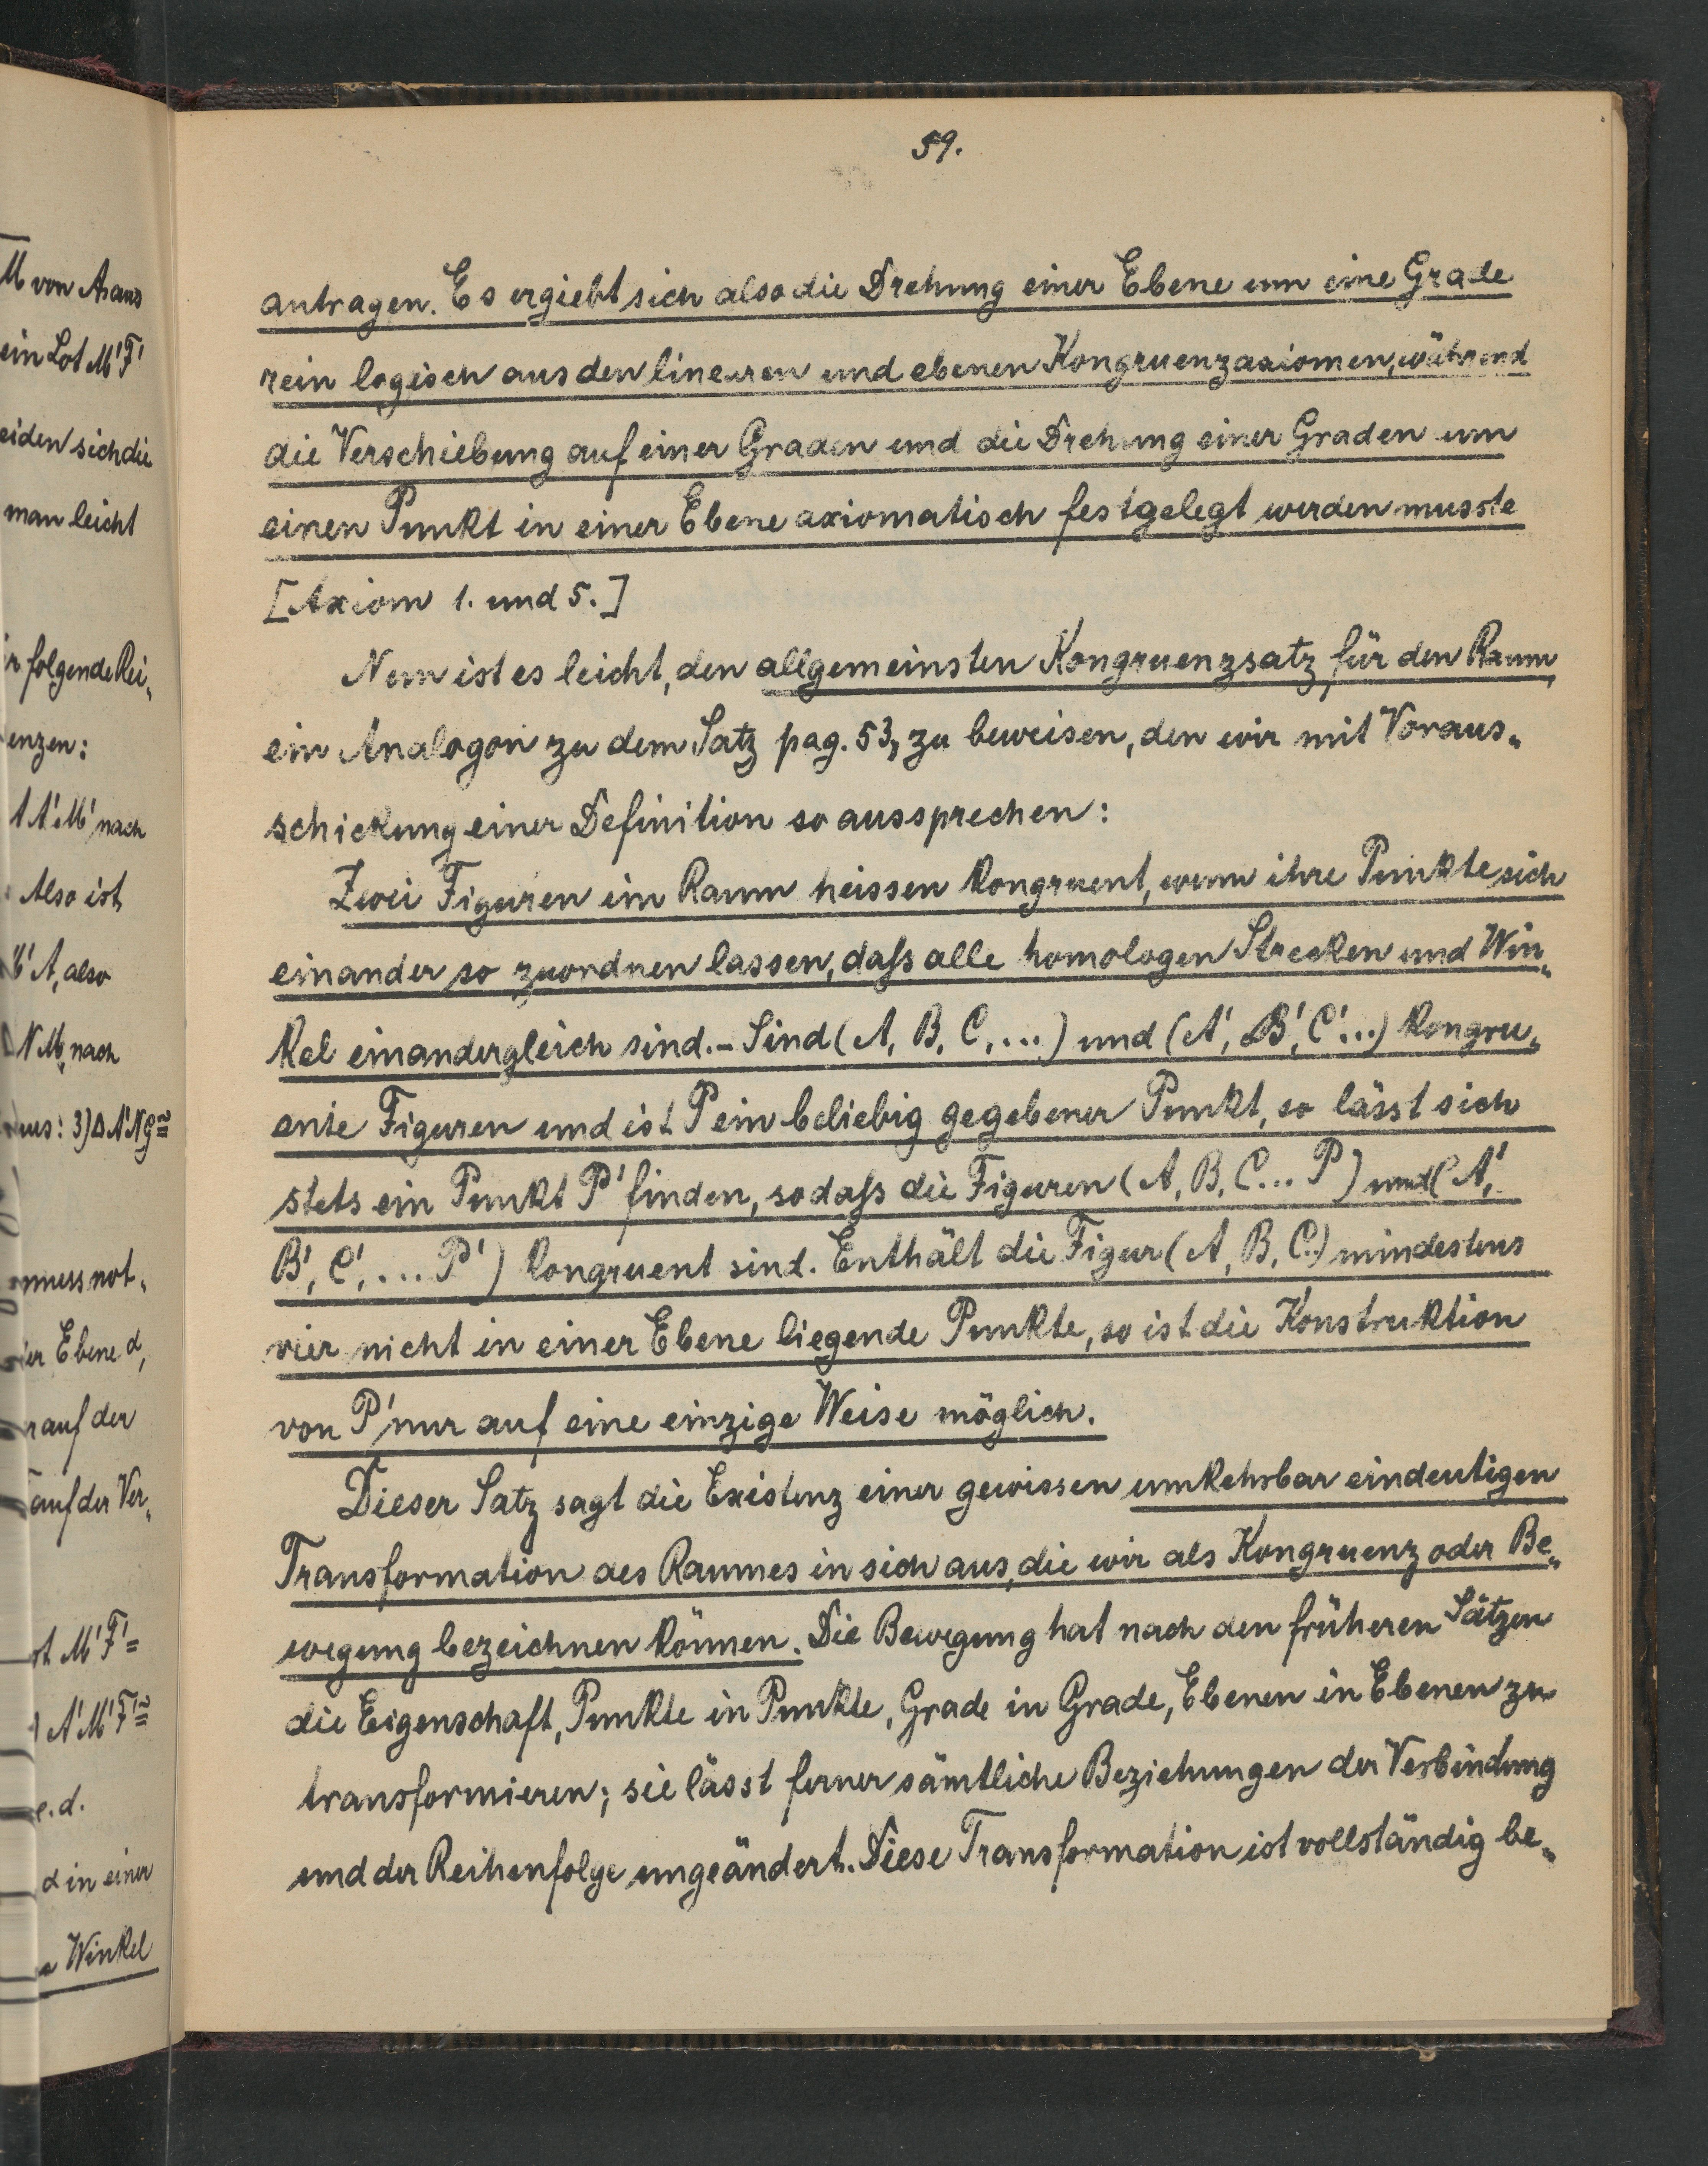 M von A aus
ein Lot M'F'
eiden sich die
man leicht
folgende Rei„
enzen:
A'M' nach
Also ist
A, also
NM, nach
muss not„
er Ebene α,
auf der
auf der Ver„
M'F'=
A'M'F'≅
e.d.
α in einer
Winkel
59.
antragen. Es ergiebt sich also die Drehung einer Ebene um eine Grade
rein logisch aus den linearen und ebenen Kongruenzaxiomen, während
die Verschiebung auf einer Graden und die Drehung einer Graden um
einen Punkt in einer Ebene axiomatisch festgelegt werden musste
[Axiom 1. und 5.]
Nun ist es leicht, den allgemeinsten Kongruenzsatz für den Raum,
ein Analogon zu dem Satz pag. 53, zu beweisen, den wir mit Voraus„
schickung einer Definition so aussprechen:
Zwei Figuren im Raum heissen kongruent, wenn ihre Punkte sich
einander so zuordnen lassen, daſs alle homologen Strecken und Win„
kel einander gleich sind. – Sind (A, B, C, ...) und (A', B', C'...) kongru„
ente Figuren und ist P ein beliebig gegebener Punkt, so lässt sich
stets ein Punkt P' finden, sodaſs die Figuren (A, B, C... P) und (A',
B', C', ... P') kongruent sind. Enthält die Figur (A, B, C..) mindestens
vier nicht in einer Ebene liegende Punkte, so ist die Konstruktion
von P' nur auf eine einzige Weise möglich.
Dieser Satz sagt die Existenz einer gewissen umkehrbar eindeutigen
Transformation des Raumes in sich aus, die wir als Kongruenz oder Be„
wegung bezeichnen können. Die Bewegung hat nach den früheren Sätzen
die Eigenschaft, Punkte in Punkte, Grade in Grade, Ebenen in Ebenen zu
transformieren; sie lässt ferner sämtliche Beziehungen der Verbindung
und der Reihenfolge ungeändert. Diese Transformation ist vollständig be„